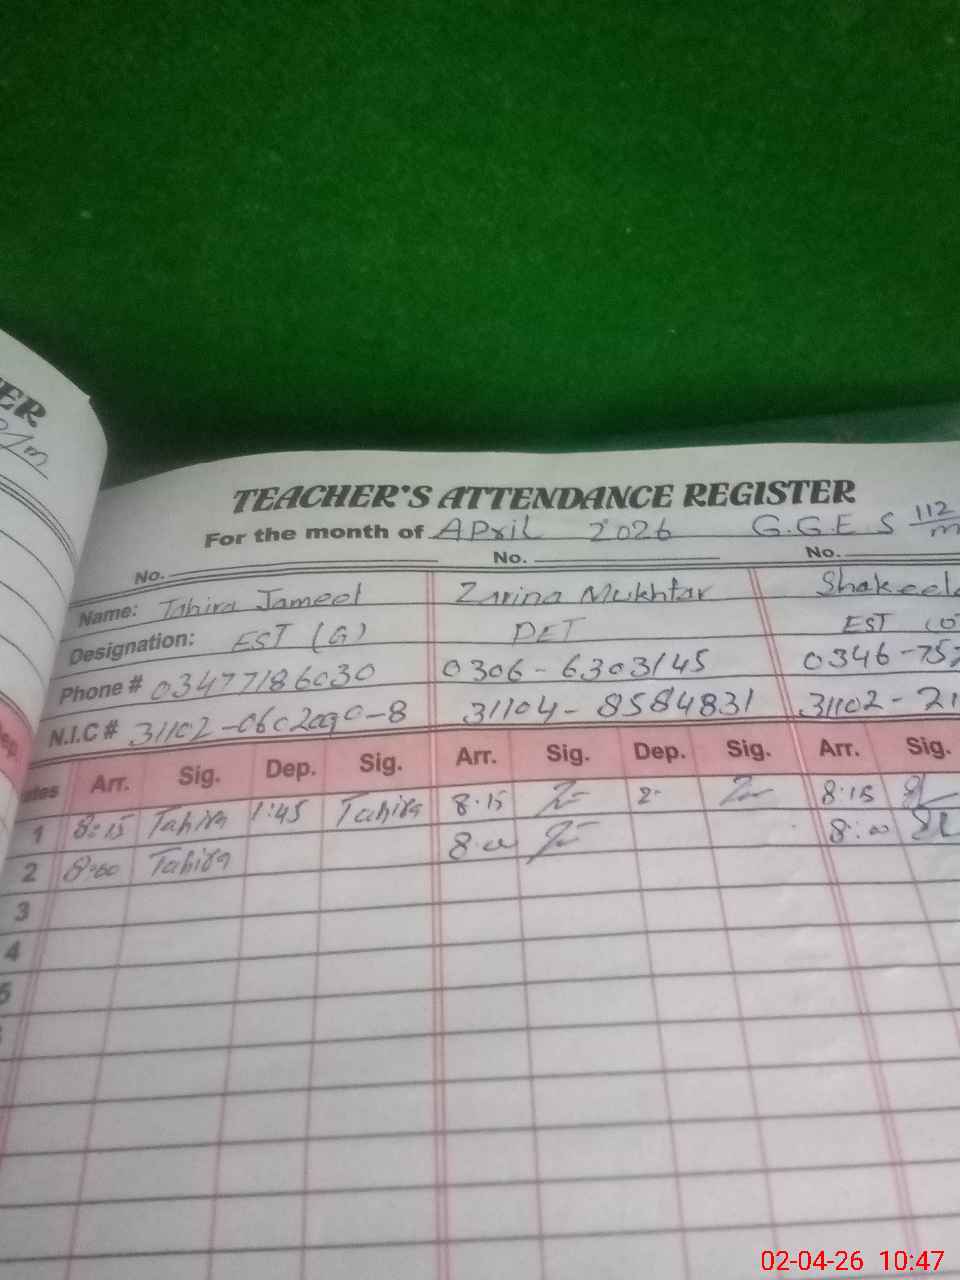 ER
TEACHER'S ATTENDANCE REGISTER
For the month of April 2026 G.G.E.S 112/m
No. No. No.
Name: Tahira Jameel Zarina Mukhtar Shakeel
Designation: EST (G) PET EST
Phone # 03477186030 0306-6303145 0346-752
N.I.C # 31102- -8 31104-8584831 31102-21
Arr. Sig. Dep. Sig. Arr. Sig. Dep. Sig. Arr. Sig.
1 8:15 Tahira 1:45 Tahira 8:15 2: 8:15
2 8:00 Tahira 8:00 8:00
3
4
5
02-04-26 10:47